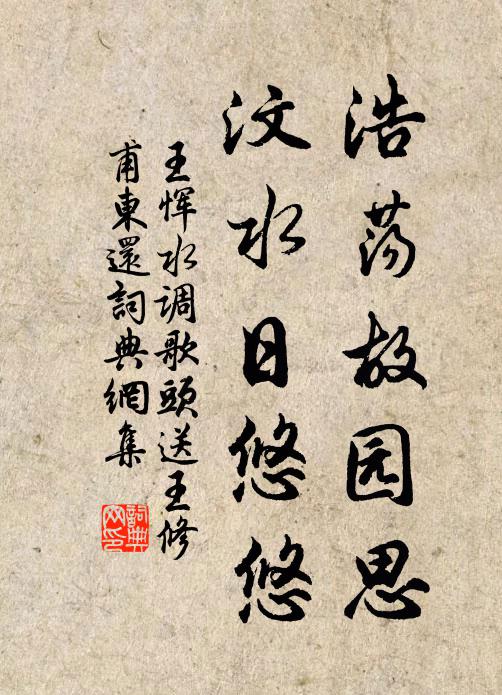 浩荡故园思
汶水日悠悠
王恽水调歌头送王修
甫東還詞典網集
詞典网印